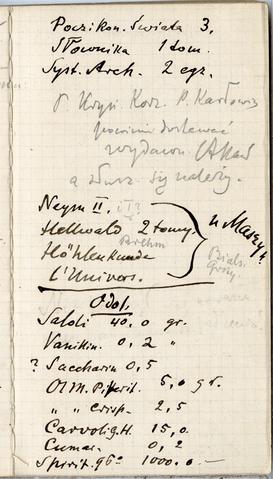 Poczikon. Świata 3.
Słownika 1 tom.
Syst. Arch. 2 egz.
P. Kryn. Korz. P. Karłowicz
powinni dostawać
wydawn. Akad
a   się należy.
Neym II.
Hellwald 2 tomy
Brehm
Höhlenkunde
L'Univers.
u Maszy.
Odol.
Saloli 40,0 gr.
Vanilin. 0,2 "
? Saccharin 0,5
Ol M. Piperit. 5,0 gr.
" " Crisp. 2,5
Carvoli gtt. 15,0
Cumar. 0,2
Spirit. 1000.0.—